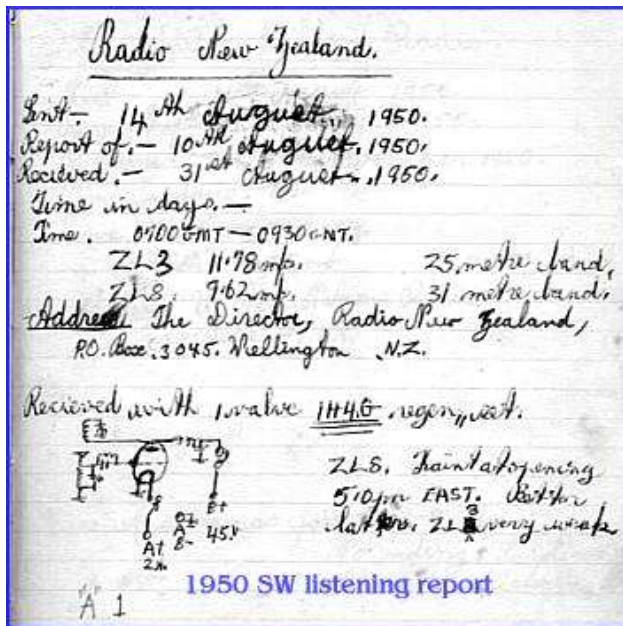 Radio New Zealand.
Sent- 14th August. 1950.
Report of.- 10th August. 1950.
Recieved.- 31st August. 1950.
Time in days.-
Time. 0700GMT-0930GMT.
ZL3 11.78mc. 25 metre band,
ZL8. 9.62mc. 31 metre band.
Address The Director, Radio New Zealand,
P.O. Box. 3045. Wellington N.Z.
Recieved with 1 valve 1H4.G regen,, set.
ZL8. Faint at opening
5.0pm EAST. Better
later. ZL3 very weak
A+
2v.
A-
B-
B+
45v
1950 SW listening report
A 1